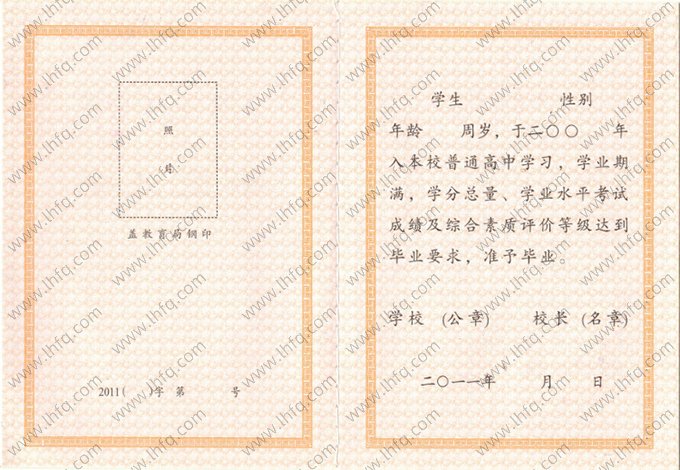 照
片
盖教育局钢印
2011(　　)字 第　　　号
学生　　　　　性别
年龄　　周岁，于二〇〇　年
入本校普通高中学习，学业期
满，学分总量、学业水平考试
成绩及综合素质评价等级达到
毕业要求，准予毕业。
学校 (公章)　　校长 (名章)
二〇一一年　　月　　日
www.lhfq.com